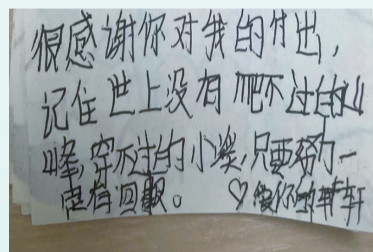 很感谢你对我的付出，
记住世上没有爬不过的山
峰，穿不过的小溪，只要努力一
定有回报。 ♡爱你的轩轩